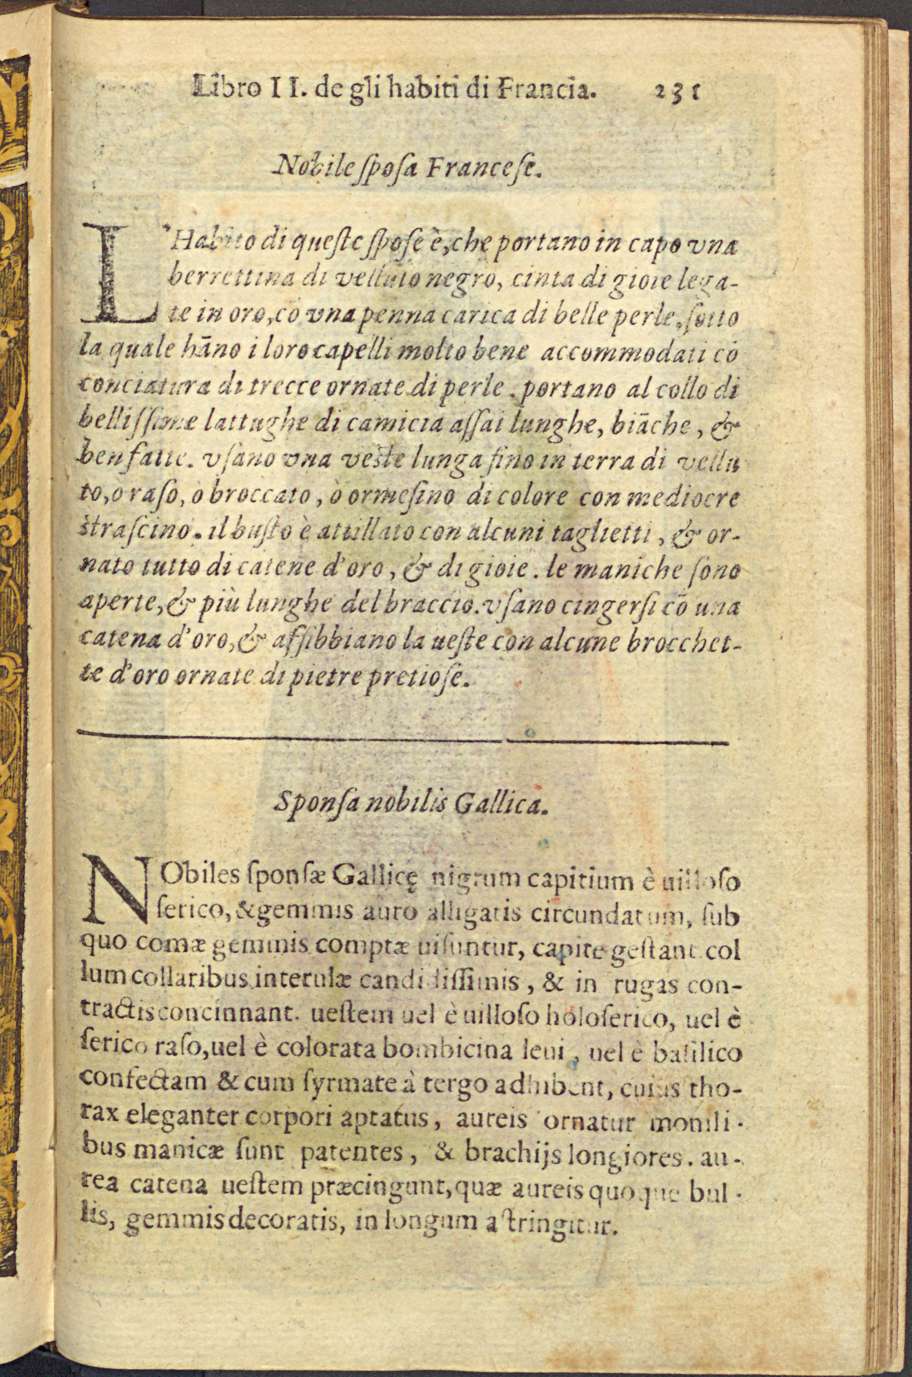 Libro II. de gli habiti di Francia. 231
Nobile ſpoſa Franceſe.
L'Habito di queſte ſpoſe è, che portano in capo vna
berrettina di velluto negro, cinta di gioie lega-
te in oro, cō vna penna carica di belle perle, ſotto
la quale hāno i loro capelli molto bene accommodati cō
conciatura di trecce ornate di perle. portano al collo di
belliſſime lattughe di camicia aſſai lunghe, biāche, &
ben fatte. vſano vna veſte lunga fino in terra di vellu
to, o raſo, o broccato, ò ormeſino di colore con mediocre
ſtraſcino. il buſto è attillato con alcuni taglietti, & or-
nato tutto di catene d'oro, & di gioie. le maniche ſono
aperte, & più lunghe del braccio. vſano cingerſi cō una
catena d'oro, & afſibbiano la ueſte con alcune brocchet-
te d'oro ornate di pietre pretioſe.
Sponſa nobilis Gallica.
NObiles ſponſæ Gallicę nigrum capitium è uilloſo
ſerico, & gemmis auro alligatis circundatum, ſub
quo comæ gemmis comptæ uiſuntur, capite geſtant col
lum collaribus interulæ candidiſſimis, & in rugas con-
tractis concinnant. ueſtem uel è uilloſo holoſerico, uel è
ſerico raſo, uel è colorata bombicina leui, uel è baſilico
confectam & cum ſyrmate à tergo adhibent, cuius tho-
rax eleganter corpori aptatus, aureis ornatur monili-
bus manicæ ſunt patentes, & brachijs longiores. au-
rea catena ueſtem præcingunt, quæ aureis quoque bul-
lis, gemmis decoratis, in longum aſtringitur.